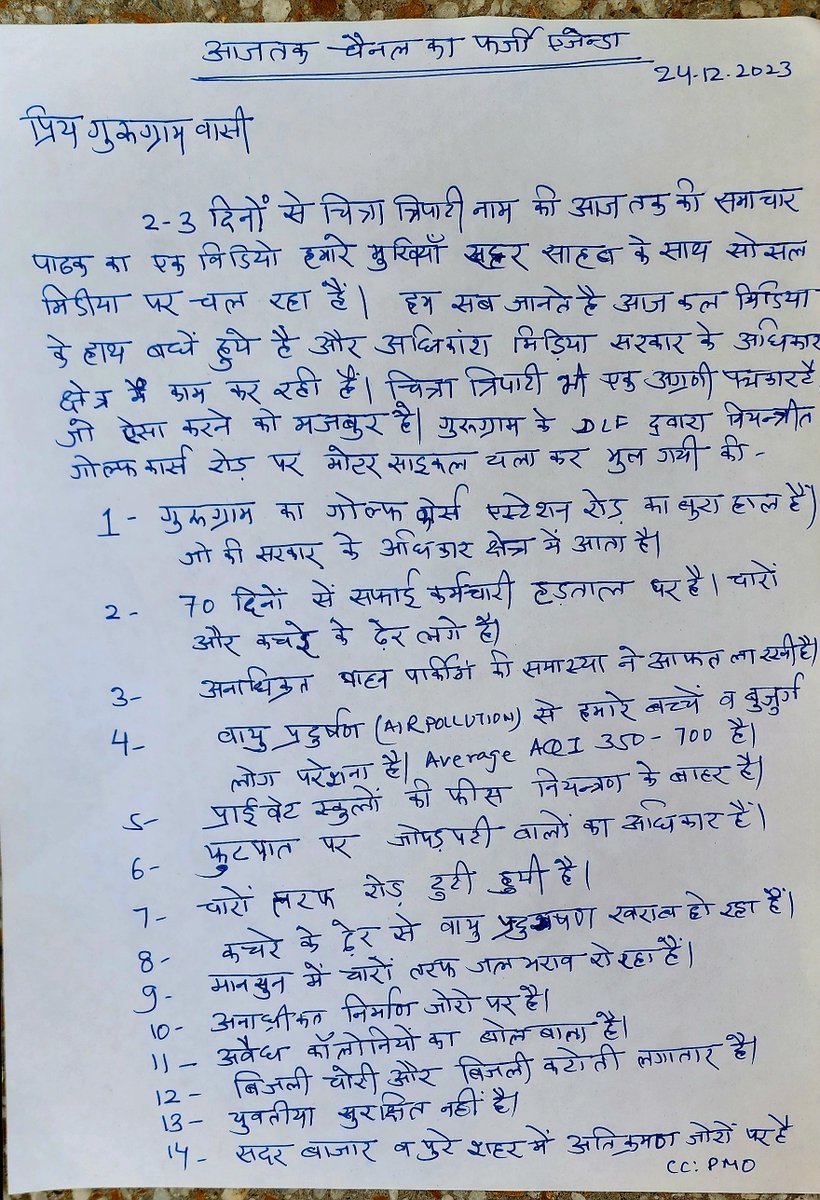 आजतक चैनल का फर्जी एजेन्डा
24.12.2023
प्रिय गुरुग्राम वासी
2-3 दिनों से चित्रा त्रिपाटी नाम की आजतक की समाचार
पाठक का एक विडियो हमारे मुखियाँ साहब के साथ सोसल
मिडीया पर चल रहा है। हम सब जानते है आज कल मिडिया
के हाथ बधें हुये है और अधिकांश मिडिया सरकार के अधिकार
क्षेत्र में काम कर रही है। चित्रा त्रिपाटी भी एक अग्रणी पत्रकार है
जो ऐसा करने को मजबुर है। गुरुग्राम के DLF द्वारा नियन्त्रीत
गोल्फ कार्स रोड़ पर मोटर साइकल चला कर भुल गयी की -
1- गुरुग्राम का गोल्फ कोर्स एस्टेशन रोड़ का बुरा हाल है
जो की सरकार के अधिकार क्षेत्र में आता है।
2- 70 दिनों से सफाई कर्मचारी हड़ताल पर है। चारों
और कचरे के ढ़ेर लगे है।
3- अनाधिकृत वाहन पार्कींग की समास्या ने आफत ला रखी है।
4- वायु प्रदुर्षण (AIR POLLUTION) से हमारे बच्चें व बुजुर्ग
लोग परेशना है। Average AQI 350-700 है।
5- प्राईवेट स्कुलों की फीस नियन्त्रण के बाहर है।
6- फुटपात पर जोपड़पटी वालों का अधिकार है।
7- चारों तरफ रोड़ टुटी हुयी है।
8- कचरे के ढ़ेर से वायु प्रदुषण खराब हो रहा है।
9- मानसुन में चारों तरफ जल भराव हो रहा है।
10- अनाधीकत निर्माण जोरो पर है।
11- अवैध कॉलोनियों का बोल बाला है।
12- बिजली चोरी और बिजली कटोती लगातार है।
13- युवतीया सुरक्षित नहीं है।
14- सदर बाजार व पुरे शहर में अतिक्रमण जोरों पर है
CC: PMO